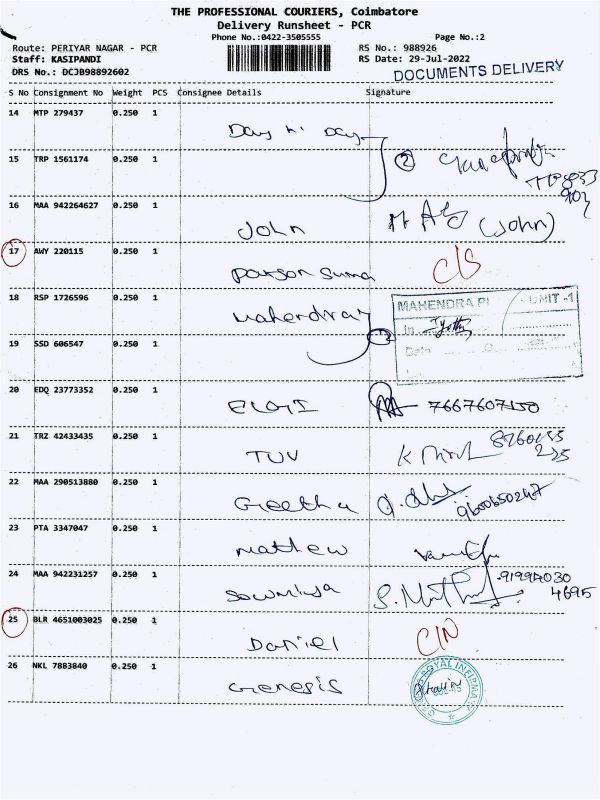 THE PROFESSIONAL COURIERS, Coimbatore
Delivery Runsheet - PCR
Phone No.:0422-3505555 Page No.:2
Route: PERIYAR NAGAR - PCR RS No.: 988926
Staff: KASIPANDI RS Date: 29-Jul-2022
DRS No.: DCJB98892602 DOCUMENTS DELIVERY
S No Consignment No Weight PCS Consignee Details Signature
14 MTP 279437 0.250 1
Day n' Day
15 TRP 1561174 0.250 1 2
16 MAA 942264627 0.250 1
John (John)
17 AWY 220115 0.250 1 C/S
Parson Suma
18 RSP 1726596 0.250 1 MAHENDRA UNIT -1
Mahendra In
19 SSD 606547 0.250 1 Date
20 EDQ 23773352 0.250 1
ELGI 7667607150
21 TRZ 42433435 0.250 1
TUV
22 MAA 290513880 0.250 1
Geetha 9600650247
23 PTA 3347047 0.250 1
Mathew
24 MAA 942231257 0.250 1
Sowmiya 4695
25 BLR 4651003025 0.250 1 C/N
Daniel
26 NKL 7883840 0.250 1
Genesis ROYAL